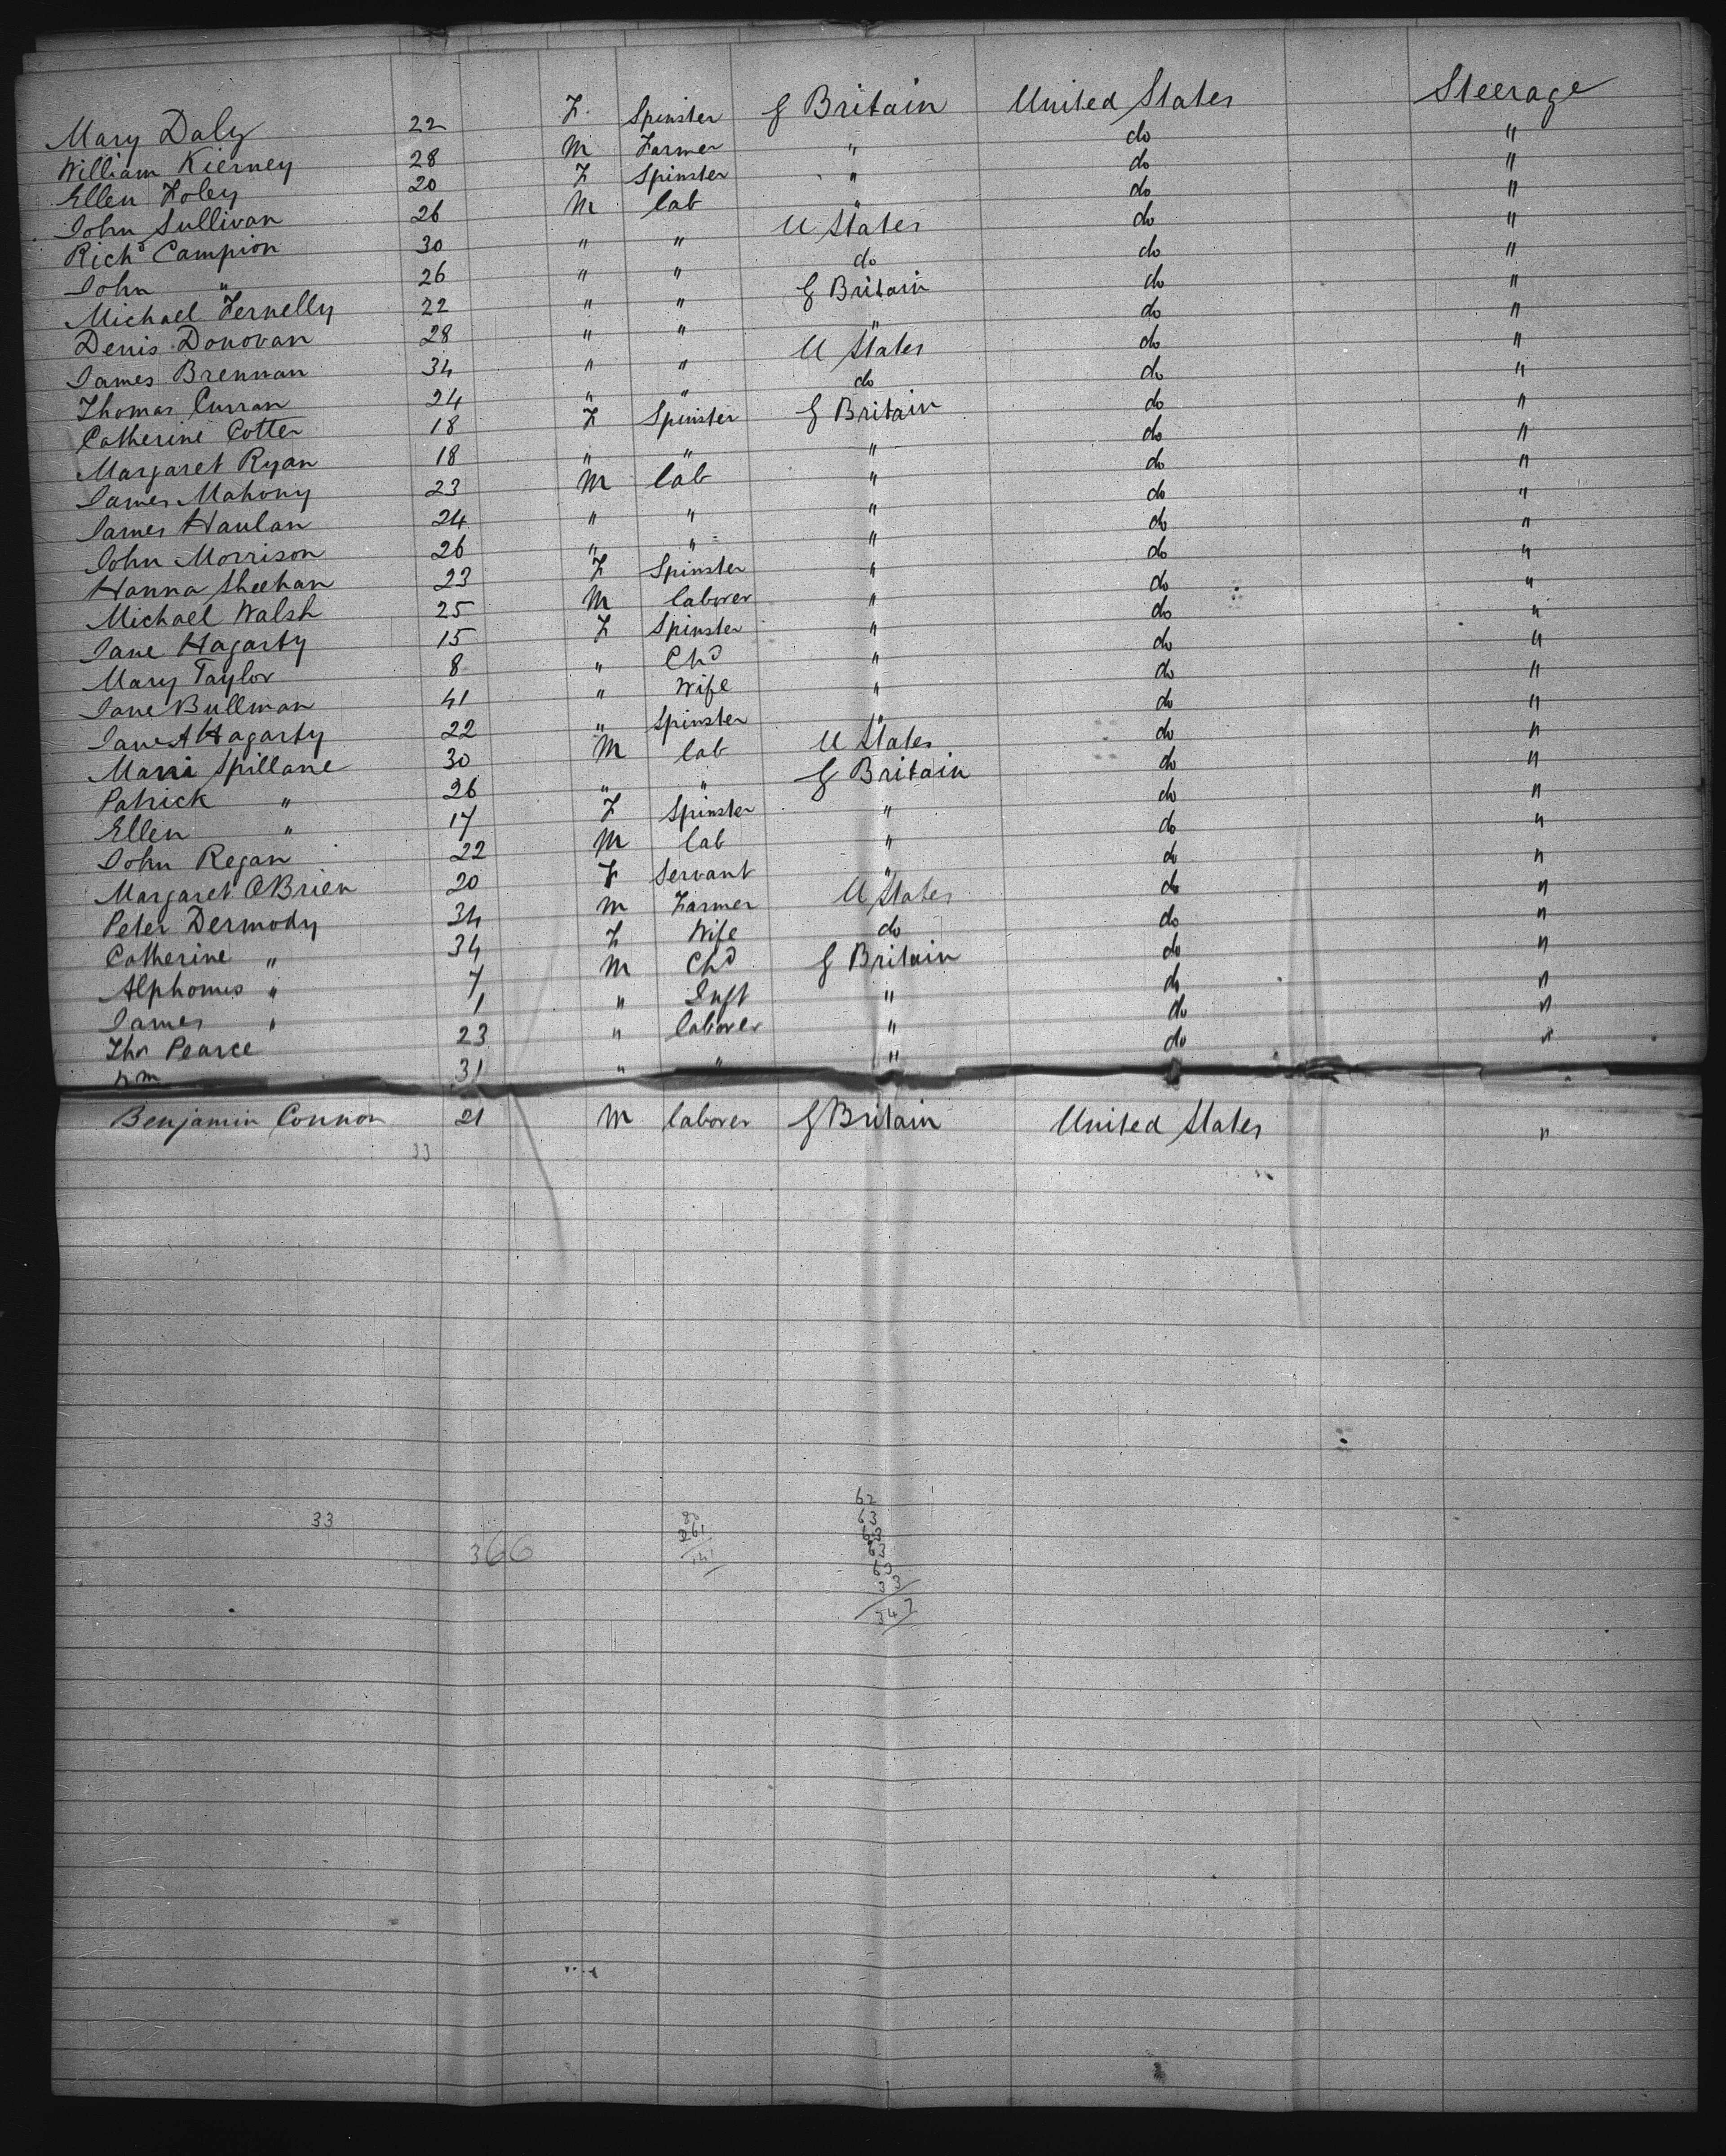 Mary Daly 22 F. Spinster G Britain United States Steerage
William Kierney 28 M Farmer " do "
Ellen Foley 20 F Spinster " do "
John Sullivan 26 M lab " do "
Richd Campion 30 " " U States do "
John " 26 " " do do "
Michael Fernelly 22 " " G Britain do "
Denis Donovan 28 " " " do "
James Brennan 34 " " U States do "
Thomas Curran 24 " " do do "
Catherine Cotter 18 F Spinster G Britain do "
Margaret Ryan 18 " " " do "
James Mahony 23 M lab " do "
James Hanlan 24 " " " do "
John Morrison 26 " " " do "
Hanna Sheehan 23 F Spinster " do "
Michael Walsh 25 M laborer " do "
Jane Hagarty 15 F Spinster " do "
Mary Taylor 8 " Chd " do "
Jane Bullman 41 " Wife " do "
Jane A Hagarty 22 " Spinster " do "
Spillane 30 M lab U States do "
Patrick " 26 " " G Britain do "
Ellen " 17 F Spinster " do "
John Regan 22 M lab " do "
Margaret OBrien 20 F Servant " do "
Peter Dermody 34 M Farmer U States do "
Catherine " 34 F Wife do do "
Alphonus " 7 M Chd G Britain do "
James " 1 " Inft " do "
Thos Pearce 23 " laborer " do "
Wm 31 " " "
Benjamin Connor 21 M laborer G Britain United States "
33
62
33 80 63
261 63
366 341 63
63
33
347